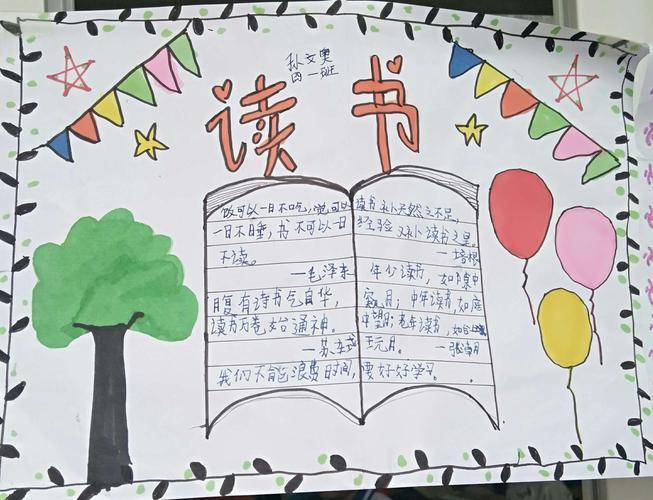 孙文奥
四一班
读书
饭可以一日不吃，觉可以
一日不睡，书不可以一日
不读。
—毛泽东
腹有诗书气自华，
读书万卷始通神。
—苏东坡
我们不能浪费时间，
读书补天然之不足，
经验又补读书之
—培根
年少读书，如隙中
窥月；中年读书，如庭
中望月；老年读书，如台上
玩月。
—张潮
要好好学习。